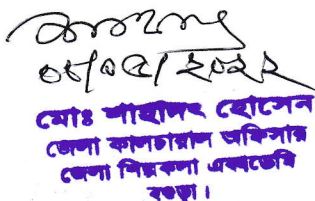 ০৮/০৫/২০২২
মোঃ শাহাদৎ হোসেন
জেলা কালচারাল অফিসার
জেলা শিল্পকলা একাডেমি
বগুড়া।